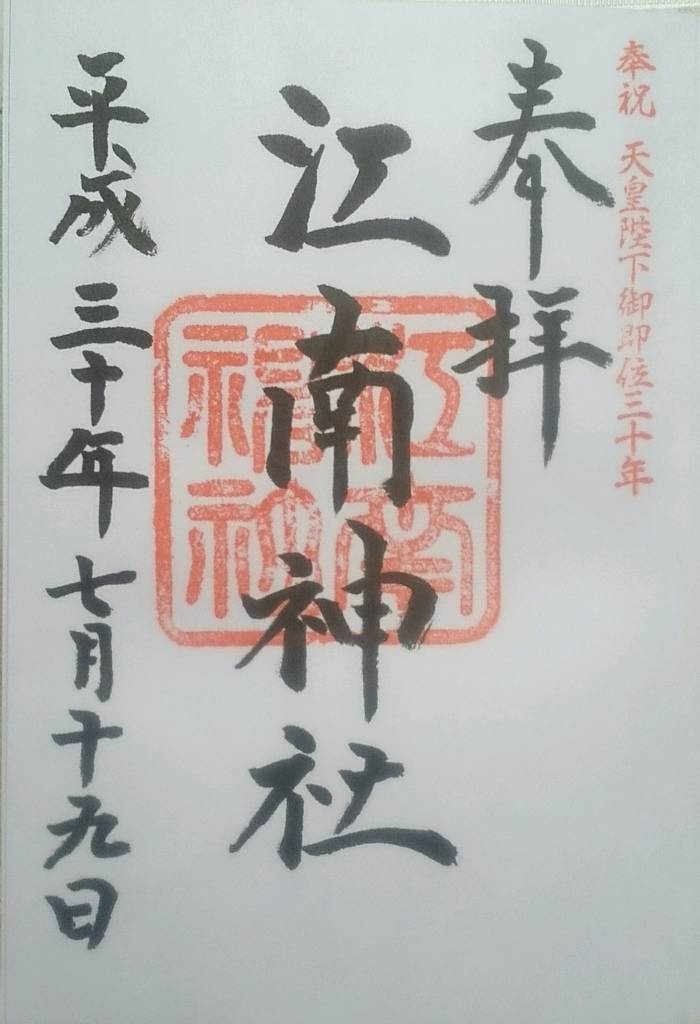 奉祝 天皇陛下御即位三十年
奉拝
江南神社
平成三十年七月十九日